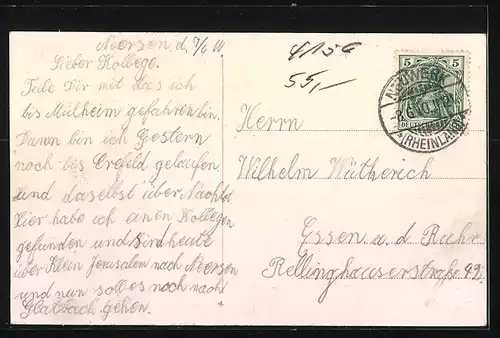 Neersen d. 7/6 10
Lieber Kollege.
Teile Dir mit das ich
bis Mülheim gefahren bin.
Dann bin ich Gestern
noch bis Crefeld gelaufen
und daselbst über Nachtet
Hier habe ich einen Kollegen
gefunden und sind heute
über Klein Jerusalem nach Neersen
und nun soll es noch nach
Glatbach gehen.
55,-
5 5
DEUTSCHES
NEUWERK
(RHEINLAND)
Herrn
Wilhelm Wütherich
Essen a. d Ruhr
Rellinghauserstraße 49.